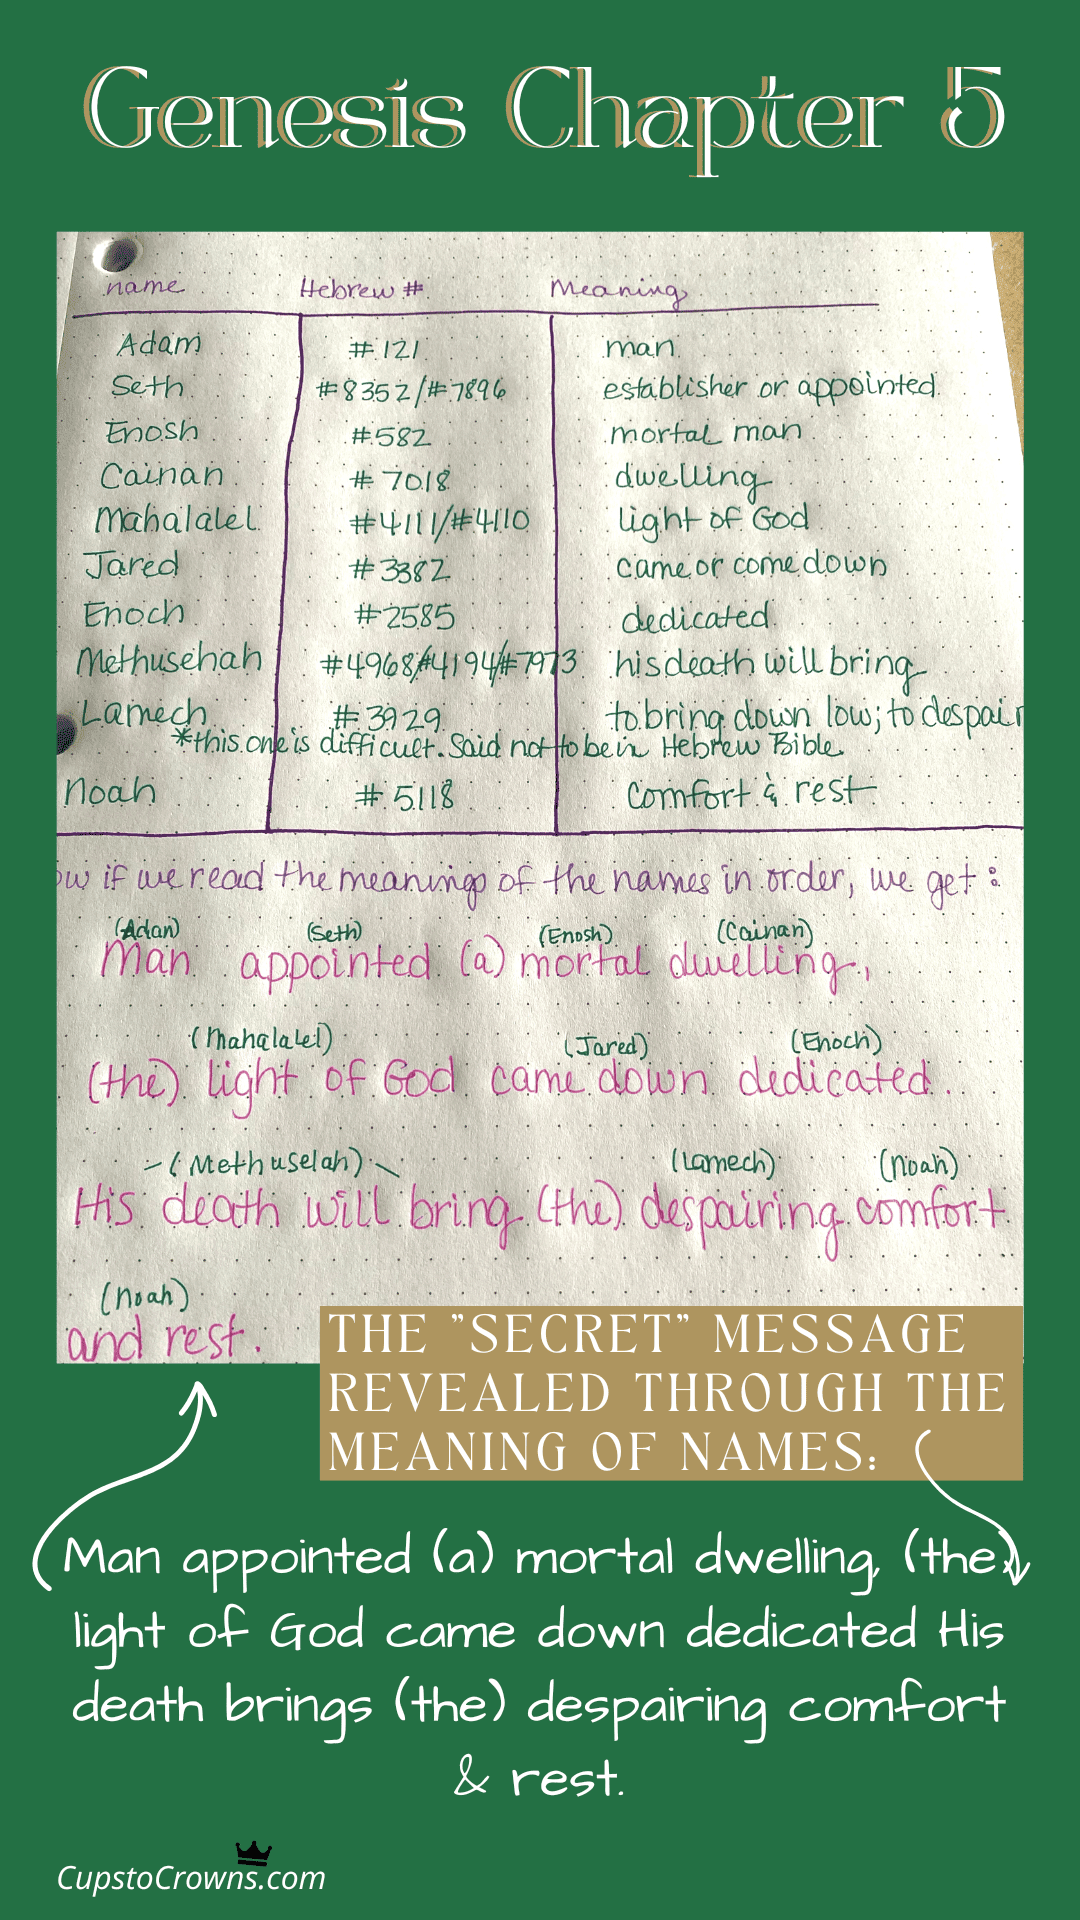 Genesis Chapter 5
name Hebrew # Meaning
Adam #121 man
Seth #8352/#7896 establisher or appointed
Enosh #582 mortal man
Cainan #7018 dwelling
Mahalalel #4111/#4110 light of God
Jared #3382 came or come down
Enoch #2585 dedicated
Methusehah #4968/#4194/#7973 his death will bring
Lamech #3929 to bring down low; to despair
*this one is difficult. Said not to be in Hebrew Bible
Noah #5118 comfort & rest
ow if we read the meaning of the names in order, we get:
(Adan) (Seth) (Enosh) (Cainan)
Man appointed (a) mortal dwelling,
(Mahalalel) (Jared) (Enoch)
(the) light of God came down dedicated.
(Methuselah) (Lamech) (Noah)
His death will bring (the) despairing comfort
(Noah)
and rest.
THE "SECRET" MESSAGE
REVEALED THROUGH THE
MEANING OF NAMES:
Man appointed (a) mortal dwelling, (the)
light of God came down dedicated His
death brings (the) despairing comfort
& rest.
CupstoCrowns.com